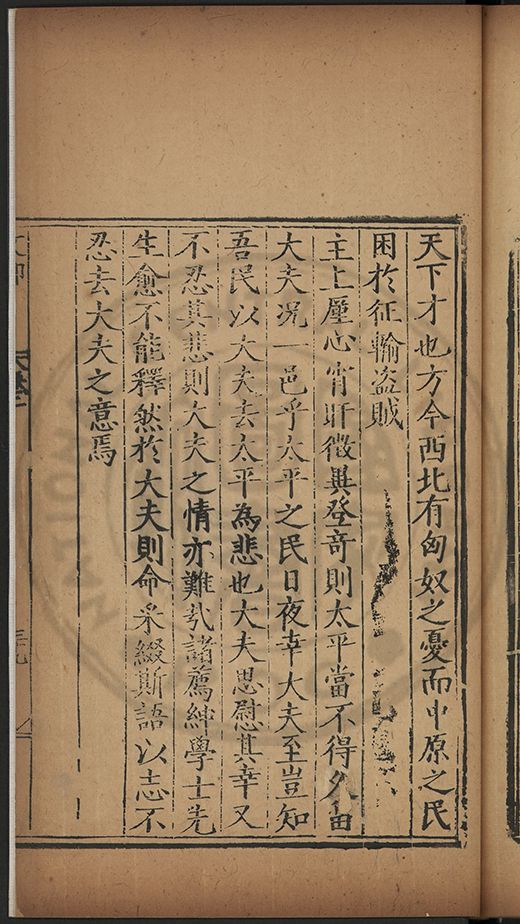 天下才也方今西北有匈奴之憂而中原之民
困於征輸盜賊
主上厪心宵旰徵異登竒則太平當不得久由
大夫況一邑乎太平之民日夜幸大夫至豈知
吾民以大夫去太平為悲也大夫思慰其幸又
不忍其悲則大夫之情亦難哉諸薦紳學士先
生愈不能釋然於大夫則命釆綴斯語以志不
忍去大夫之意焉